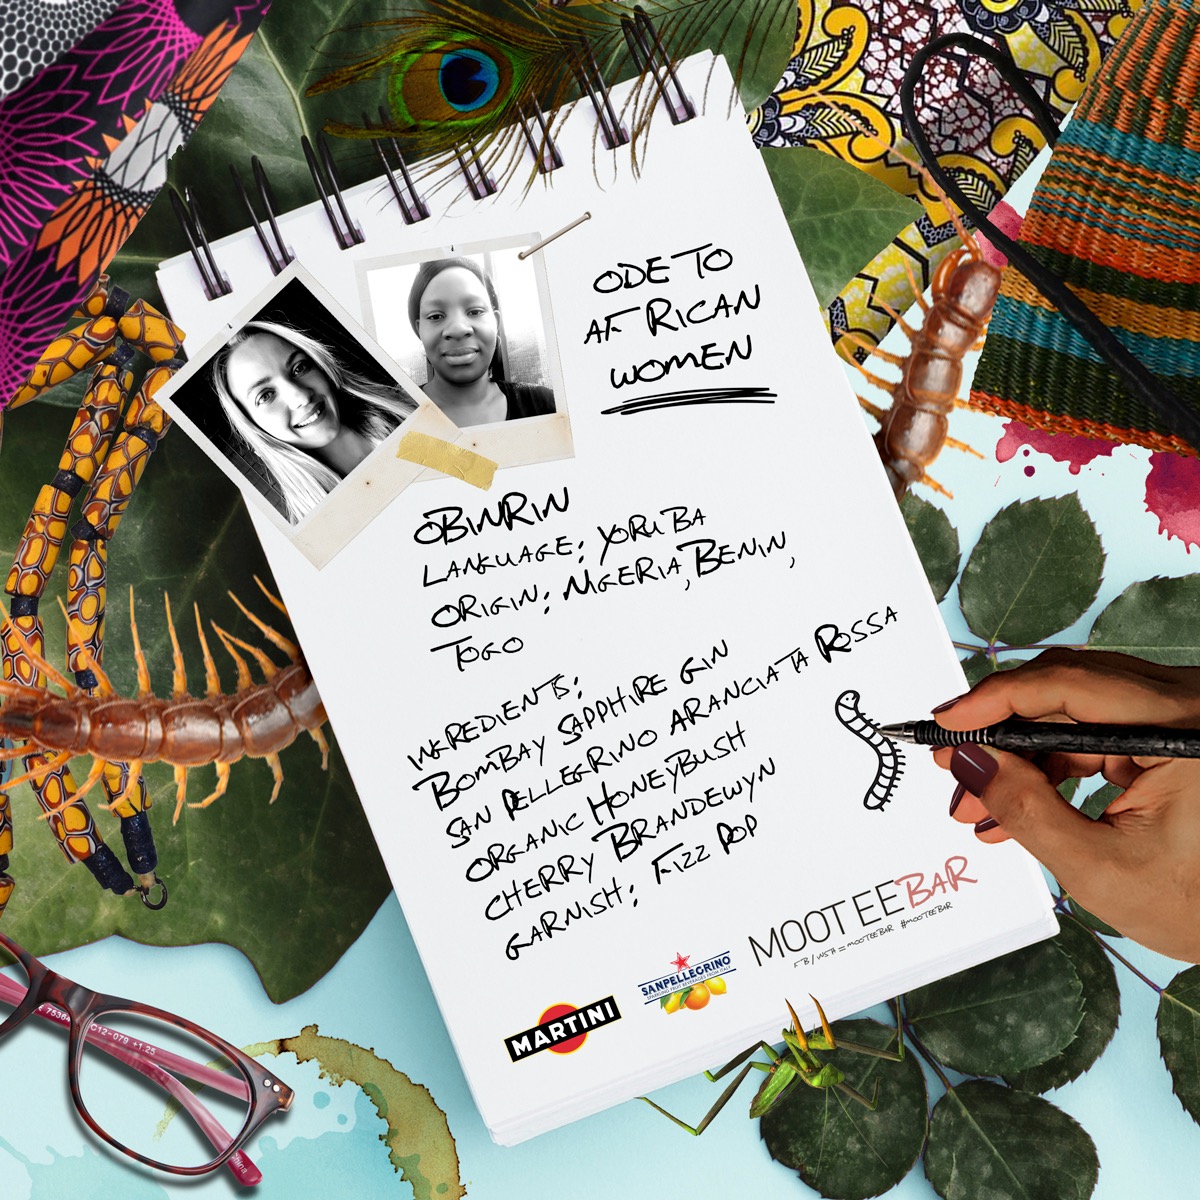 ODE TO
AFRICAN
WOMEN
OBINRIN
LANGUAGE: YORUBA
ORIGIN: NIGERIA, BENIN,
TOGO
INGREDIENTS:
BOMBAY SAPPHIRE GIN
SAN PELLEGRINO ARANCIATA ROSSA
ORGANIC HONEYBUSH
CHERRY BRANDEWYN
GARNISH: FIZZ POP
MOOTEEBAR
FB/INSTA = MOOTEEBAR #MOOTEEBAR
SANPELLEGRINO
SPARKLING FRUIT BEVERAGES FROM ITALY
MARTINI
C12-079 +1.25
China